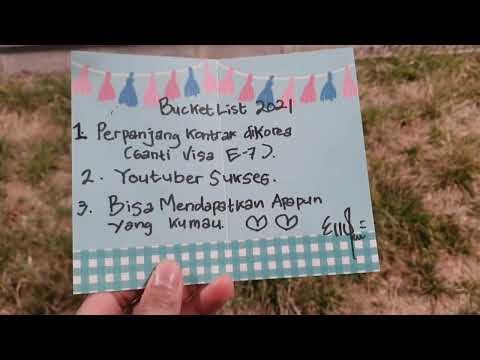 Bucket List 2021
1. Perpanjang Kontrak diKorea
(Ganti Visa E-7).
2. Youtuber Sukses.
3. Bisa Mendapatkan Apapun
yang Kumau.